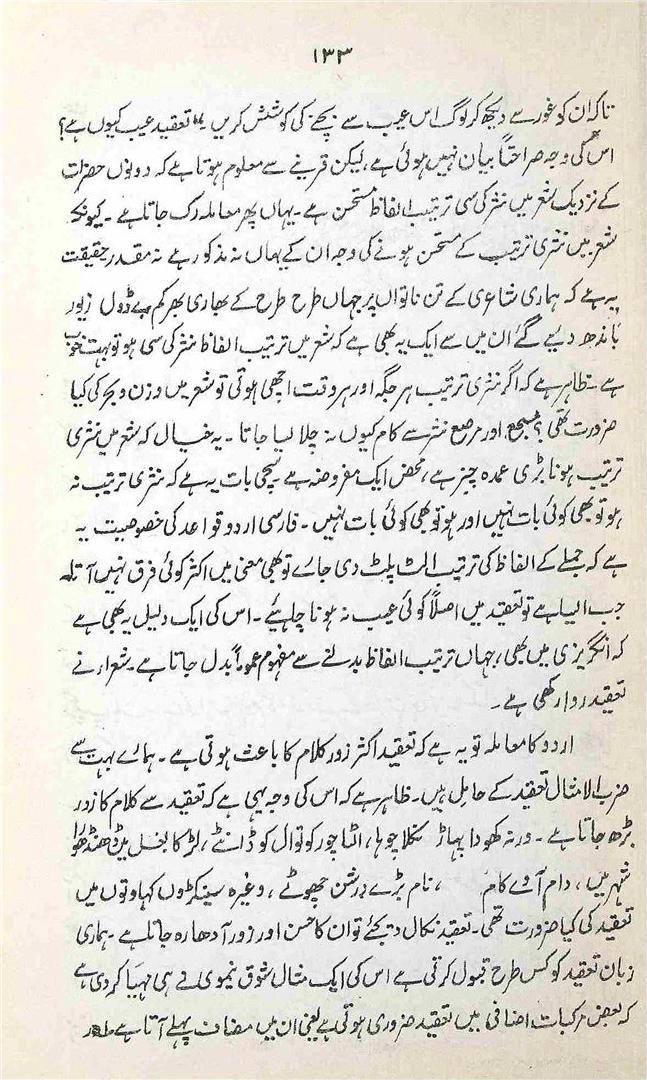 ۱۳۳
تاکہ ان کو غور سے دیکھ کر لوگ اس عیب سے بچنے کی کوشش کریں۔“ تعقید عیب کیوں ہے؟
اس کی وجہ صراحتاً بیان نہیں ہوئی ہے، لیکن قرینے سے معلوم ہوتا ہے کہ دونوں حضرات
کے نزدیک شعر میں نثر کی سی ترتیب الفاظ مستحسن ہے۔ یہاں پھر معاملہ رک جاتا ہے۔ کیونکہ
شعر میں نثری ترتیب کے مستحسن ہونے کی وجہ ان کے یہاں نہ مذکور ہے نہ مقدر۔ حقیقت
یہ ہے کہ ہماری شاعری کے تن ناتواں پر جہاں طرح طرح کے بھاری بھرکم بے ڈول زیور
باندھ دیے گئے ان میں سے ایک یہ بھی ہے کہ شعر میں ترتیب الفاظ نثر کی سی ہو تو بہت خوب
ہے۔ ظاہر ہے کہ اگر نثری ترتیب ہر جگہ اور ہر وقت اچھی ہوتی تو شعر میں وزن و بحر کی کیا
ضرورت تھی؟ مسجع اور مرصع نثر سے کام کیوں نہ چلا لیا جاتا۔ یہ خیال کہ شعر میں نثری
ترتیب ہونا بڑی عمدہ چیز ہے، محض ایک مفروضہ ہے سچی بات یہ ہے کہ نثری ترتیب نہ
ہو تو بھی کوئی بات نہیں اور ہو تو بھی کوئی بات نہیں۔ فارسی اردو قواعد کی خصوصیت یہ
ہے کہ جملے کے الفاظ کی ترتیب الٹ پلٹ دی جاے تو بھی معنی میں اکثر کوئی فرق نہیں آتا۔
جب ایسا ہے تو تعقید میں اصلاً کوئی عیب نہ ہونا چاہئیے۔ اس کی ایک دلیل یہ بھی ہے
کہ انگریزی میں بھی، جہاں ترتیب الفاظ بدلنے سے مفہوم عموماً بدل جاتا ہے۔ شعراء نے
تعقید روا رکھی ہے۔
اردو کا معاملہ تو یہ ہے کہ تعقید اکثر زور کلام کا باعث ہوتی ہے۔ ہمارے بہت سے
ضرب الامثال تعقید کے حامل ہیں۔ ظاہر ہے کہ اس کی وجہ یہی ہے کہ تعقید سے کلام کا زور
بڑھ جاتا ہے۔ ورنہ کھودا پہاڑ نکلا چوہا، الٹا چور کوتوال کو ڈانٹے، لڑکا بغل میں ڈھنڈھورا
شہر میں، دام آوے کام، نام بڑے درشن چھوٹے، وغیرہ سینکڑوں کہاوتوں میں
تعقید کی کیا ضرورت تھی۔ تعقید نکال دیجئے تو ان کا حسن اور زور آدھا رہ جاتا ہے۔ ہماری
زبان تعقید کو کس طرح قبول کرتی ہے اس کی ایک مثال شوق نیموی نے ہی مہیا کر دی ہے
کہ بعض مرکبات اضافی میں تعقید ضروری ہوتی ہے یعنی ان میں مضاف پہلے آتا ہے